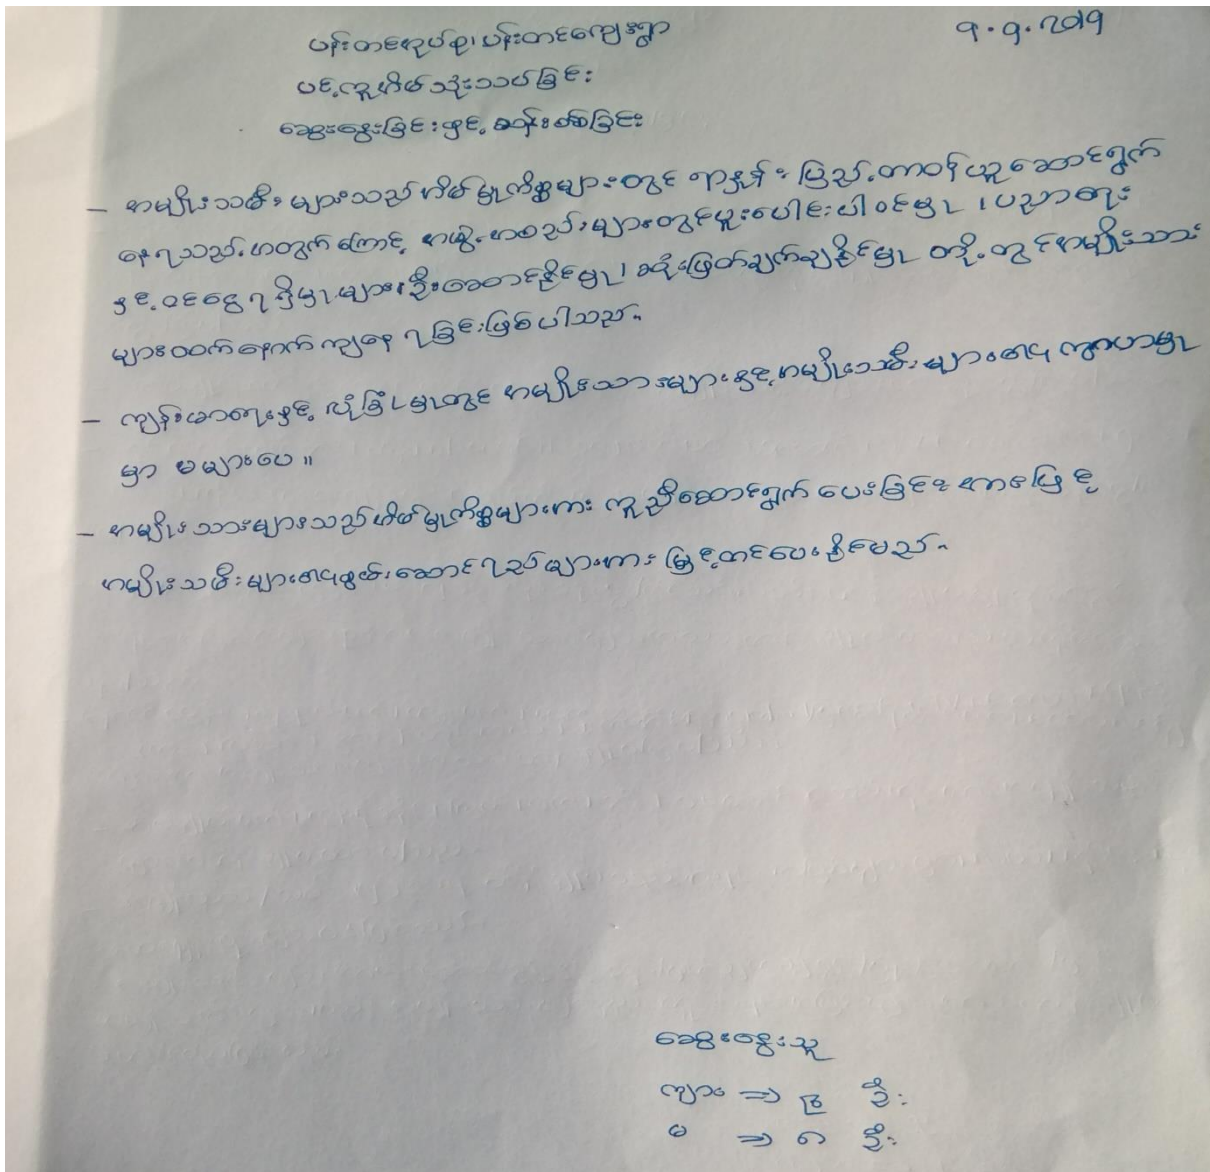 ပန်းတင်အုပ်စု၊ ပန်းတင်ကျေးရွာ
၉.၉.၂၀၁၉
ပင့်ကူအိမ်သုံးသပ်ခြင်း
ဆွေးနွေးခြင်းနှင့် ဆန်းစစ်ခြင်း
- အမျိုးသမီးများသည်အိမ်မှုကိစ္စများတွင် ရာနှုန်းပြည့်တာဝန်ယူဆောင်ရွက်
နေရသည့်အတွက်ကြောင့် အဖွဲ့အစည်းများတွင်ပူးပေါင်းပါဝင်မှု၊ ပညာရေး
နှင့်ဝင်ငွေရရှိမှုများ၊ ဦးဆောင်နိုင်မှု၊ ဆုံးဖြတ်ချက်ချနိုင်မှု တို့တွင်အမျိုးသား
များထက်နောက်ကျနေ ရခြင်းဖြစ်ပါသည်။
- ကျန်းမာရေးနှင့် လုံခြုံမှုတွင် အမျိုးသားများနှင့်အမျိုးသမီးများ၏ ကွာဟမှု
မှာ မများပေ။
- အမျိုးသားများသည်အိမ်မှုကိစ္စများအား ကူညီဆောင်ရွက် ပေးခြင်းအားဖြင့်
အမျိုးသမီးများ၏စွမ်းဆောင်ရည်များအား မြှင့်တင်ပေးနိုင်မည်။
ဆွေးနွေးသူ
ကျား ⇒ ဦး
မ ⇒ ၈ ဦး